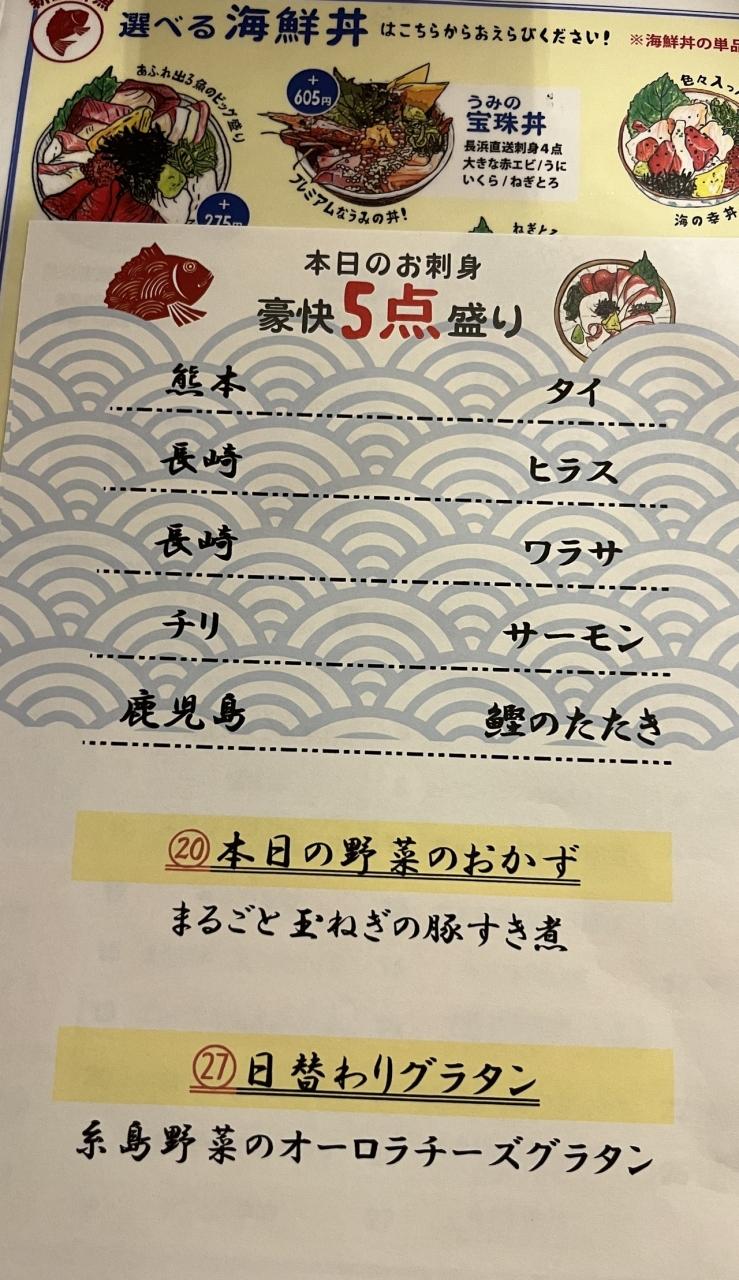 選べる海鮮丼はこちらからおえらびください!
※海鮮丼の単品
あふれ出る魚のビッグ盛り
+275円
+605円
プレミアムなうみの丼!
うみの
宝珠丼
長浜直送刺身4点
大きな赤エビ/うに
いくら/ねぎとろ
色々入っ
海の幸丼
ねぎとろ
本日のお刺身
豪快5点盛り
熊本 タイ
長崎 ヒラス
長崎 ワラサ
チリ サーモン
鹿児島 鰹のたたき
⑳本日の野菜のおかず
まるごと玉ねぎの豚すき煮
㉗日替わりグラタン
糸島野菜のオーロラチーズグラタン